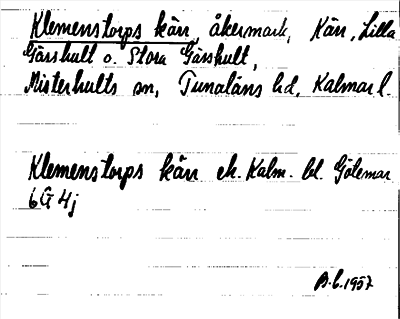 Klemenstorps kärr, åkermark, Kärr, Lilla
Gässhult o. Stora Gässhult,
Misterhults sn, Tunaläns hd, Kalmar l.
Klemenstorps kärr ek. Kalm. bl. Götemar
6G 4j
1957